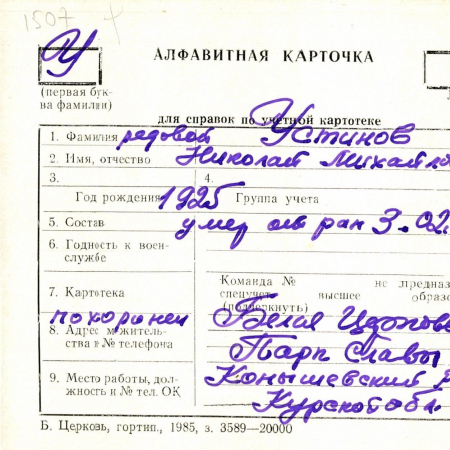 1507
У
АЛФАВИТНАЯ КАРТОЧКА
(первая бук-
ва фамилии)
для справок по учетной картотеке
1. Фамилия рядовой Устинов
2. Имя, отчество Николай Михайло
3. 4.
Год рождения 1925 Группа учета
5. Состав умер от ран 3.02.
6. Годность к воен-
службе
Команда № не предназ
спецучет высшее образо
(подчеркнуть)
7. Картотека
похоронен Белая
8. Адрес м житель-
ства и № телефона
Парк Славы
9. Место работы, дол-
жность и № тел. ОК
Конышевский р
Курской обл.
Б. Церковь, гортип., 1985, з. 3589—20000